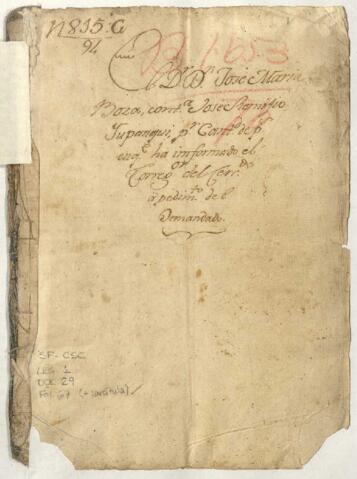 N 815. C
94
El D.r D.n Jose Maria
Boza, cont.a Jose
Tupanqui, p.r Cant.d de p.s
enq.e ha informado el
Correg.or del Cerc.do
a pedim.to del
Demandado.
SF-CSC
LEG 1
DOC 29
Fol 67 (+ carátula)